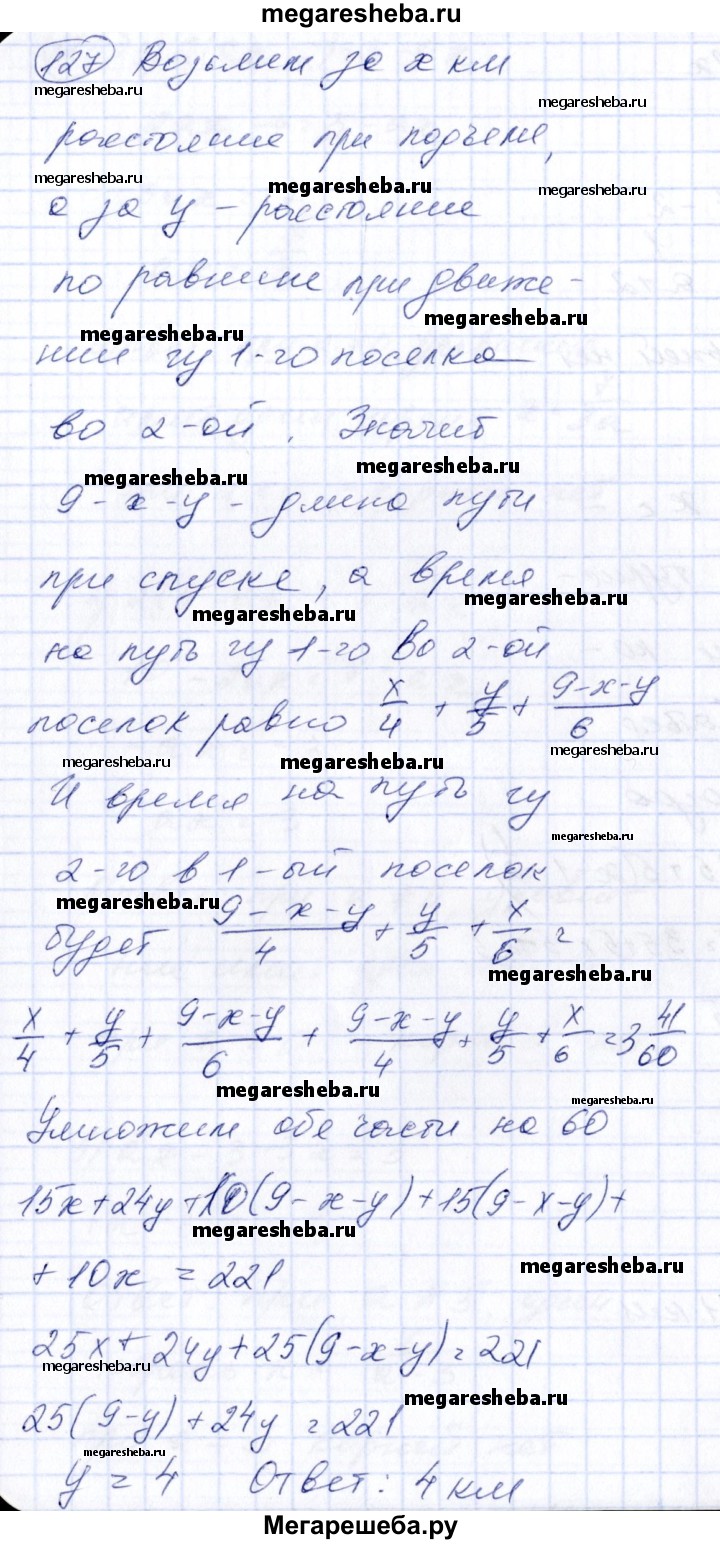 megaresheba.ru
127 Возьмем за x км
megaresheba.ru
megaresheba.ru
расстояние при подъеме,
megaresheba.ru
megaresheba.ru
megaresheba.ru
а за y – расстояние
по равнине при движе-
megaresheba.ru
megaresheba.ru
нии из 1-го поселка
во 2-ой. Значит
megaresheba.ru
megaresheba.ru
9-x-y - длина пути
при спуске, а время
megaresheba.ru
megaresheba.ru
на путь из 1-го во 2-ой
поселок равно x/4 + y/5 + (9-x-y)/6
megaresheba.ru
megaresheba.ru
И время на путь из
megaresheba.ru
2-го в 1-ый поселок
megaresheba.ru
будет (9-x-y)/4 + y/5 + x/6 =
megaresheba.ru
x/4 + y/5 + (9-x-y)/6 + (9-x-y)/4 + y/5 + x/6 = 3 41/60
megaresheba.ru
megaresheba.ru
Умножим обе части на 60
15x+24y+10(9-x-y)+15(9-x-y)+
megaresheba.ru
+10x = 221
megaresheba.ru
25x+24y+25(9-x-y)=221
megaresheba.ru
megaresheba.ru
25(9-y)+24y=221
megaresheba.ru
y = 4 Ответ: 4 км
Мегарешеба.ру